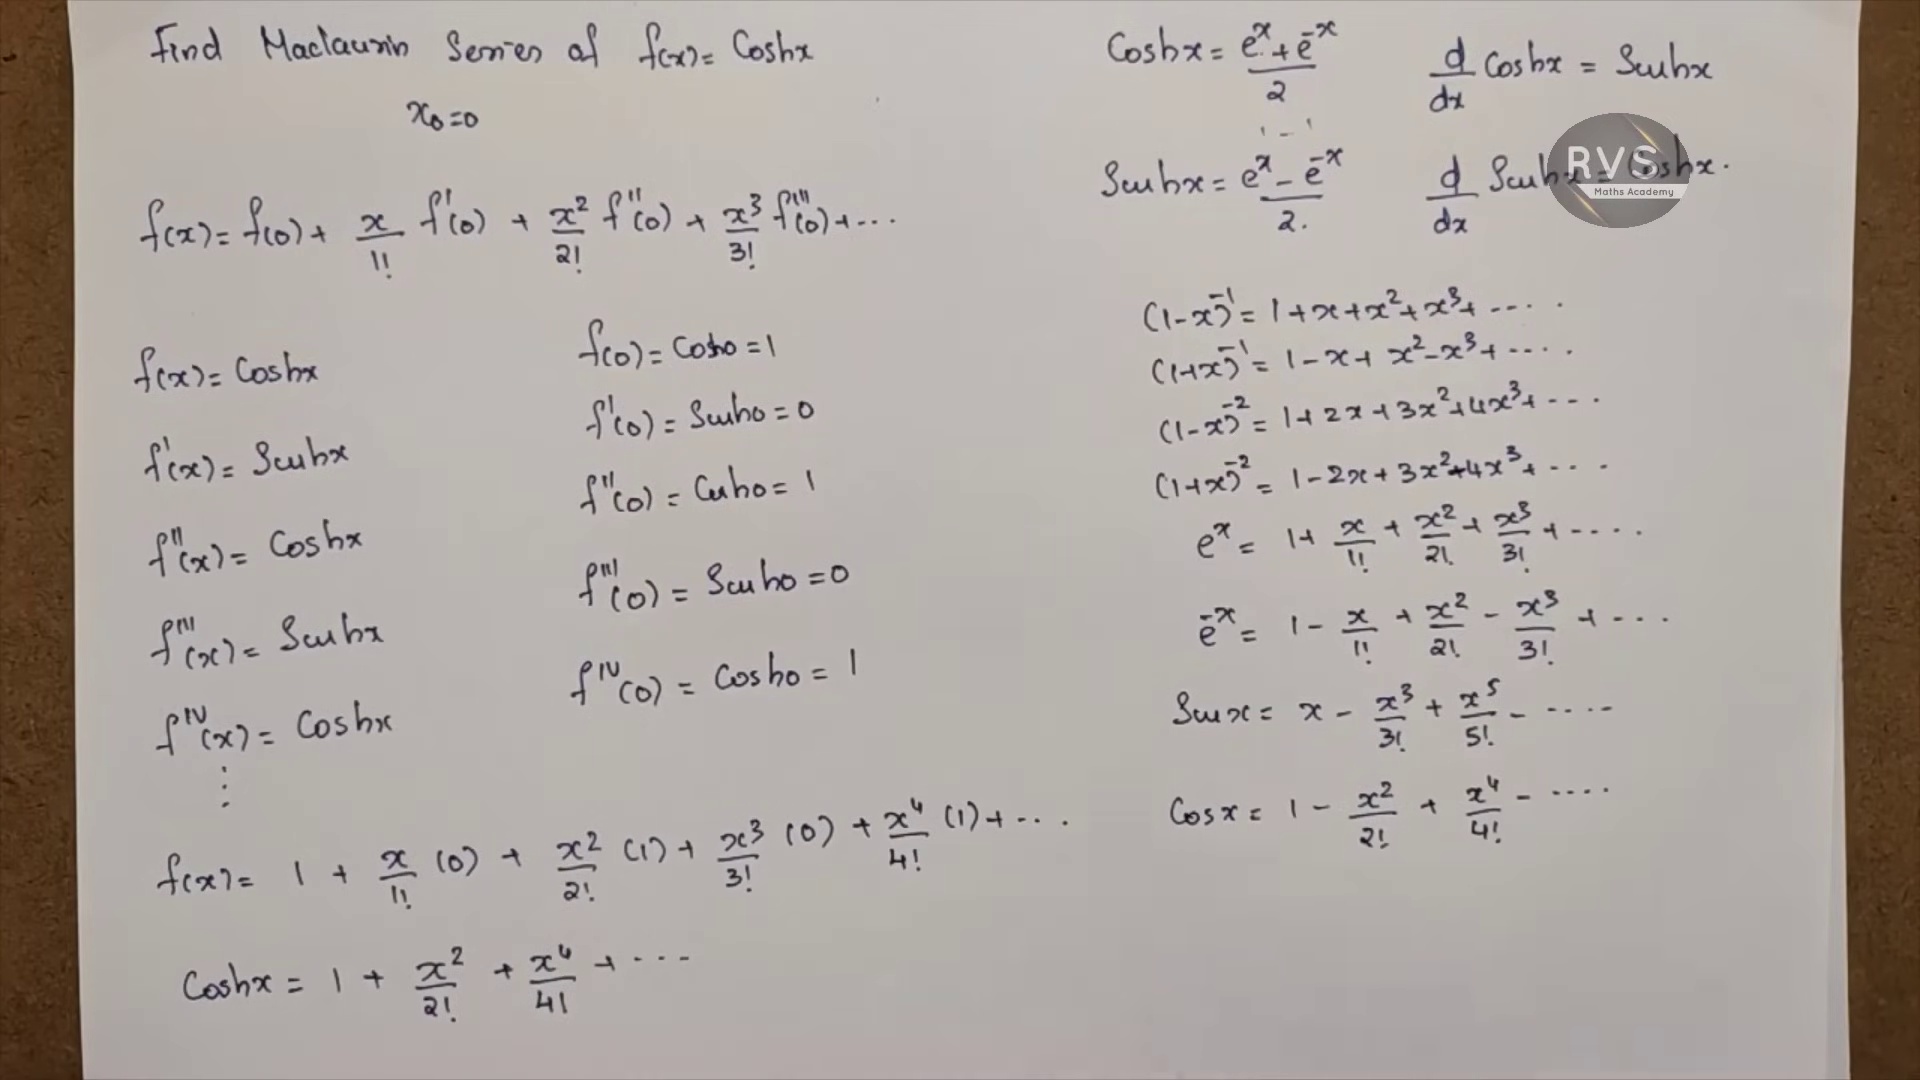 Find Maclaurin Series of f(x) = Coshx
x₀=0
f(x) = f(0) + x/1! f'(0) + x²/2! f''(0) + x³/3! f'''(0) + ...
f(x) = Coshx
f(0) = Cosho = 1
f'(x) = Sinhx
f'(0) = Sinho = 0
f''(x) = Coshx
f''(0) = Cosho = 1
f'''(x) = Sinhx
f'''(0) = Sinho = 0
f^IV(x) = Coshx
f^IV(0) = Cosho = 1
⋮
f(x) = 1 + x/1! (0) + x²/2! (1) + x³/3! (0) + x⁴/4! (1) + ...
Coshx = 1 + x²/2! + x⁴/4! + ...
Coshx = (eˣ + e⁻ˣ)/2
d/dx Coshx = Sinhx
Sinhx = (eˣ - e⁻ˣ)/2.
d/dx Sinhx = Coshx.
RVS
Maths Academy
(1-x)⁻¹ = 1 + x + x² + x³ + ....
(1+x)⁻¹ = 1 - x + x² - x³ + ....
(1-x)⁻² = 1 + 2x + 3x² + 4x³ + ...
(1+x)⁻² = 1 - 2x + 3x² - 4x³ + ...
eˣ = 1 + x/1! + x²/2! + x³/3! + ....
e⁻ˣ = 1 - x/1! + x²/2! - x³/3! + ...
Sinx = x - x³/3! + x⁵/5! - ....
Cosx = 1 - x²/2! + x⁴/4! - ....